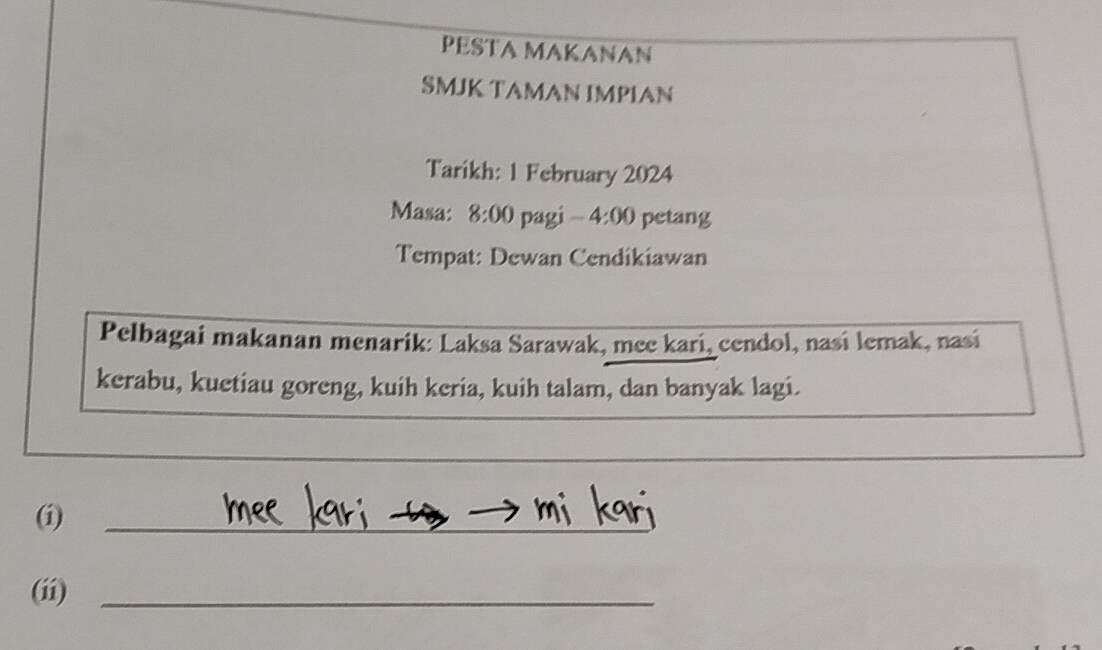 PESTA MAKANAN
SMJK TAMAN IMPIAN
Tarikh: 1 February 2024
Masa: 8:00 pagi – 4:00 petang
Tempat: Dewan Cendikiawan
Pelbagai makanan menarik: Laksa Sarawak, mee kari, cendol, nasi lemak, nasi
kerabu, kuetiau goreng, kuih keria, kuih talam, dan banyak lagi.
(i) mee kari → mi kari
(ii)